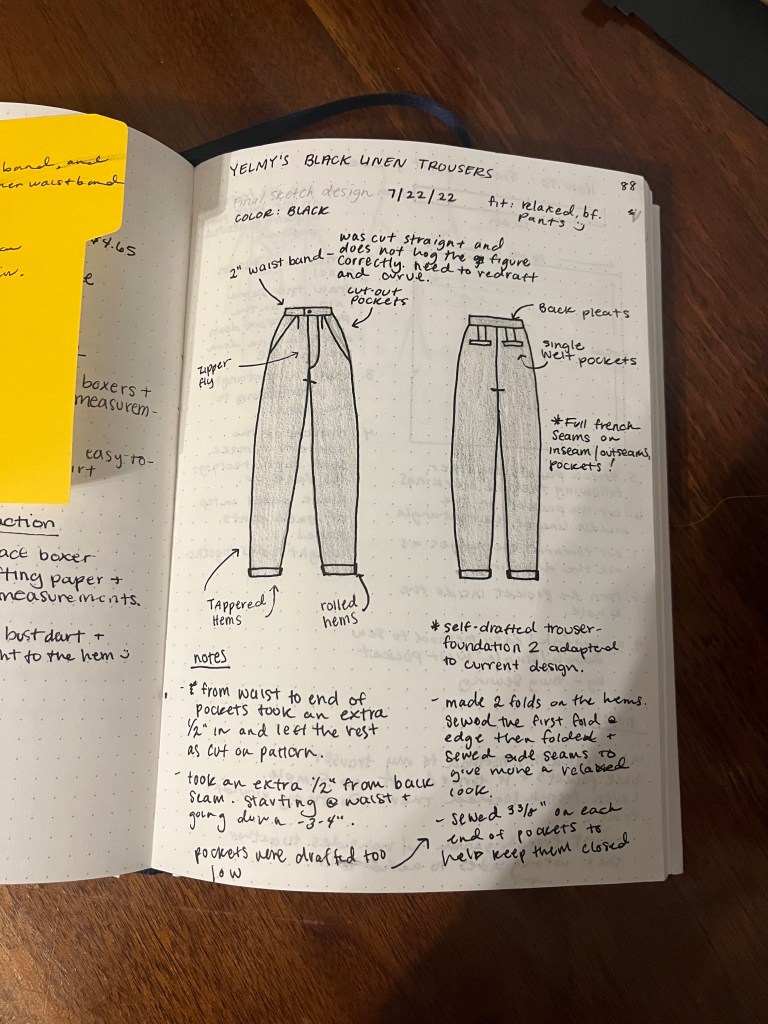 band, and
ner waistband
$4.65
boxers +
measurem-
easy-to-
action
act boxer
fting paper +
measurements.
bust dart +
ht to the hem
YELMY'S BLACK LINEN TROUSERS
88
Final sketch design 7/22/22
COLOR: BLACK
fit: relaxed, bf.
pants
2" waist band-
was cut straight and
does not hog the figure
correctly. need to redraft
and curve.
cut-out
pockets
zipper
fly
Back pleats
single
welt pockets
*Full french
seams on
inseam/outseams,
pockets!
TAppered
Hems
rolled
hems
*self-drafted trouser-
foundation 2 adapted
to current design.
notes
- from waist to end of
pockets took an extra
1/2" in and left the rest
as cut on pattern.
- took an extra 1/2" from back
seam. starting @ waist +
going down ~3-4".
pockets were drafted too
low
- made 2 folds on the hems.
sewed the first fold @
edge then folded +
sewed side seams to
give move a relaxed
look.
- sewed 3 3/8" on each
end of pockets to
help keep them closed